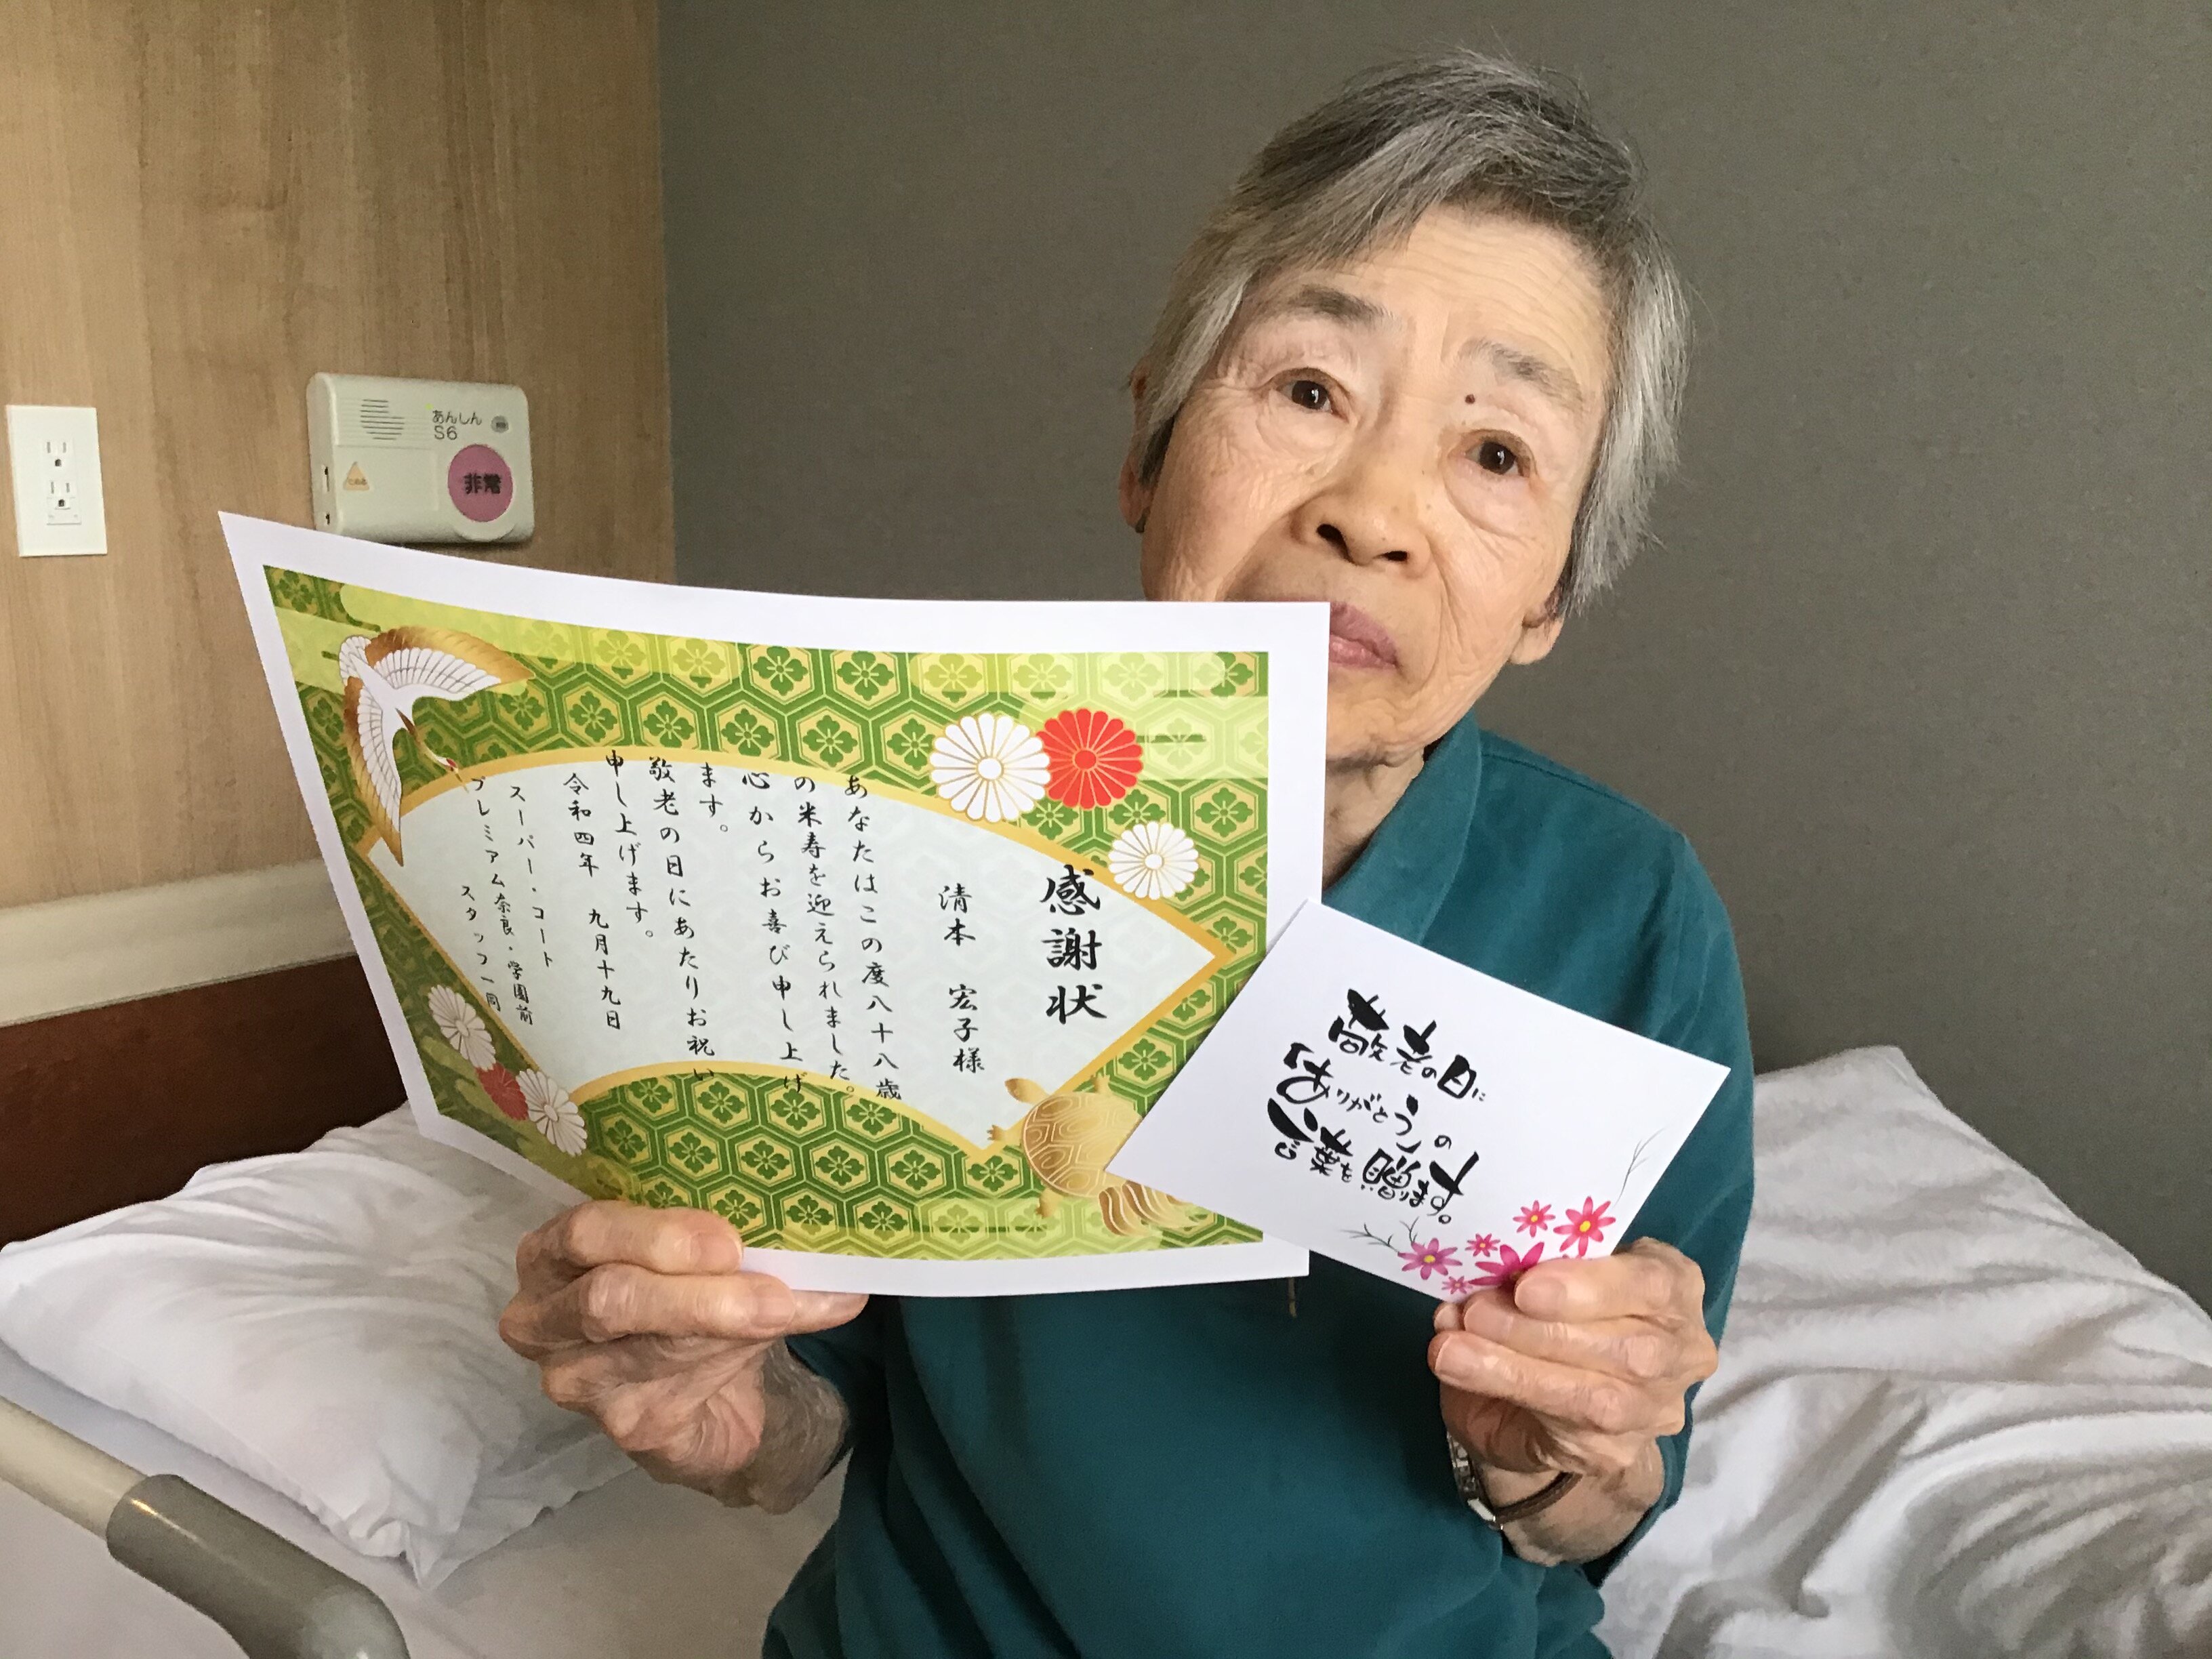 あんしん
S6
非常
感謝状
清本　宏子様
あなたはこの度八十八歳
の米寿を迎えられました。
心からお喜び申し上げ
ます。
敬老の日にあたりお祝い
申し上げます。
令和四年　九月十九日
スーパー・コート
プレミアム奈良・学園前
スタッフ一同
敬老の日に
「ありがとう」の
言葉を贈ります。